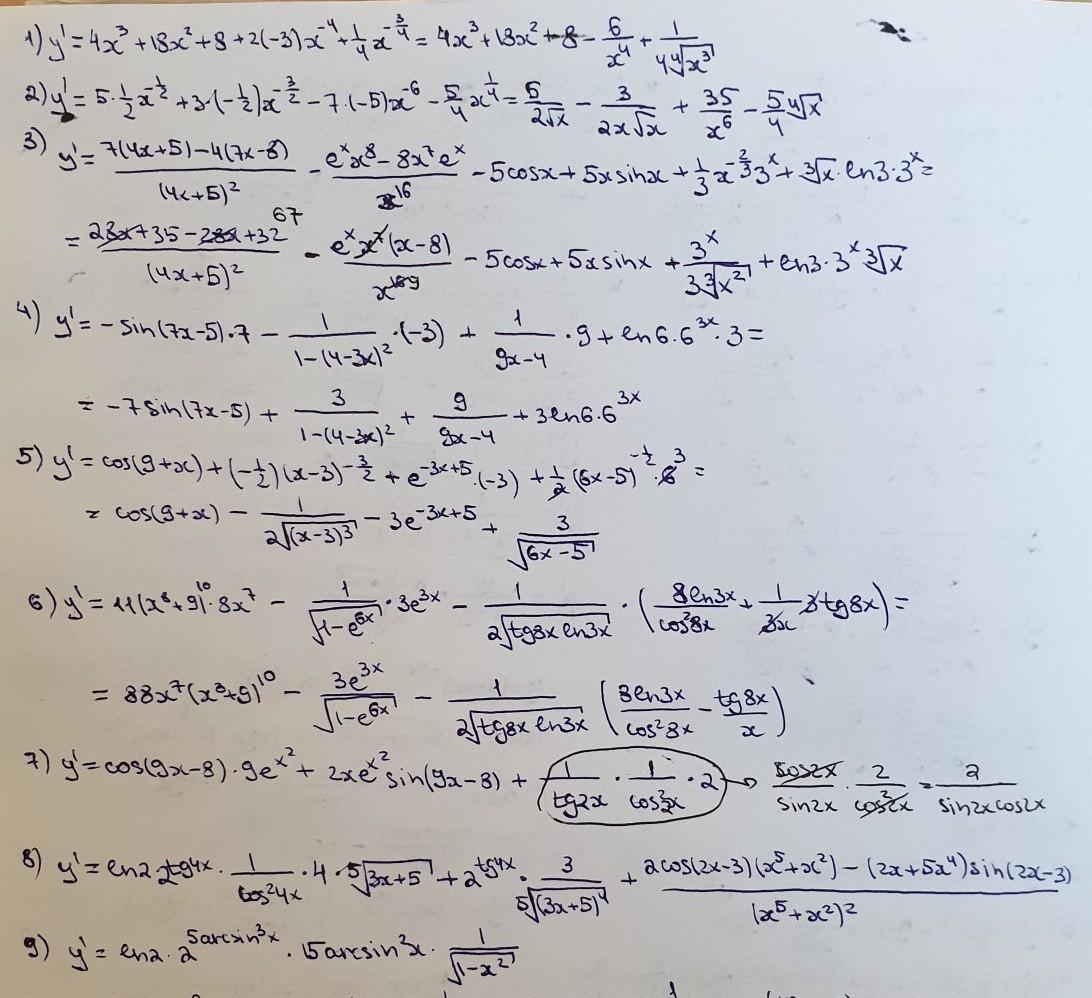 1) y' = 4x³ + 18x² + 8 + 2(-3)x⁻⁴ + 1/4 x^(-3/4) = 4x³ + 18x² + 8 - 6/x⁴ + 1/(4∜x³)
2) y' = 5·1/2 x^(-1/2) + 3·(-1/2)x^(-3/2) - 7·(-5)x⁻⁶ - 5/4 x^(1/4) = 5/(2√x) - 3/(2x√x) + 35/x⁶ - 5/4 ∜x
3) y' = (7(4x+5) - 4(7x-8))/(4x+5)² - (eˣx⁸ - 8x⁷eˣ)/x¹⁶ - 5cosx + 5x sinx + 1/3 x^(-2/3) 3ˣ + ∛x · ln3 · 3ˣ =
= (28x + 35 - 28x + 32 67)/(4x+5)² - eˣx⁷(x-8)/x⁹ - 5cosx + 5x sinx + 3ˣ/(3∛x²) + ln3·3ˣ ∛x
4) y' = -sin(7x-5)·7 - 1/(1-(4-3x)²) · (-3) + 1/(9x-4) · 9 + ln6·6³ˣ·3 =
= -7sin(7x-5) + 3/(1-(4-3x)²) + 9/(9x-4) + 3ln6·6³ˣ
5) y' = cos(9+x) + (-1/2)(x-3)^(-3/2) + e^(-3x+5)·(-3) + 1/2 (6x-5)^(-1/2) · 6 3 =
= cos(9+x) - 1/(2√(x-3)³) - 3e^(-3x+5) + 3/√(6x-5)
6) y' = 11(x⁸+9)¹⁰·8x⁷ - 1/√(1-e⁶ˣ) · 3e³ˣ - 1/(2√(tg8x ln3x)) · (8ln3x/cos²8x + 1/(3x) 3tg8x) =
= 88x⁷(x⁸+9)¹⁰ - 3e³ˣ/√(1-e⁶ˣ) - 1/(2√(tg8x ln3x)) (8ln3x/cos²8x - tg8x/x)
7) y' = cos(9x-8)·9e^(x²) + 2xe^(x²) sin(9x-8) + 1/tg2x · 1/cos²2x · 2 → cos2x/sin2x · 2/cos²2x = 2/(sin2x cos2x)
8) y' = ln2·2^(tg4x) · 1/cos²4x · 4 · ⁵√(3x+5) + 2^(tg4x) · 3/(5√(3x+5)⁴) + (2cos(2x-3)(x⁵+x²) - (2x+5x⁴)sin(2x-3))/(x⁵+x²)²
9) y' = ln2 · 2^(5arcsin³x) · 15arcsin²x · 1/√(1-x²)